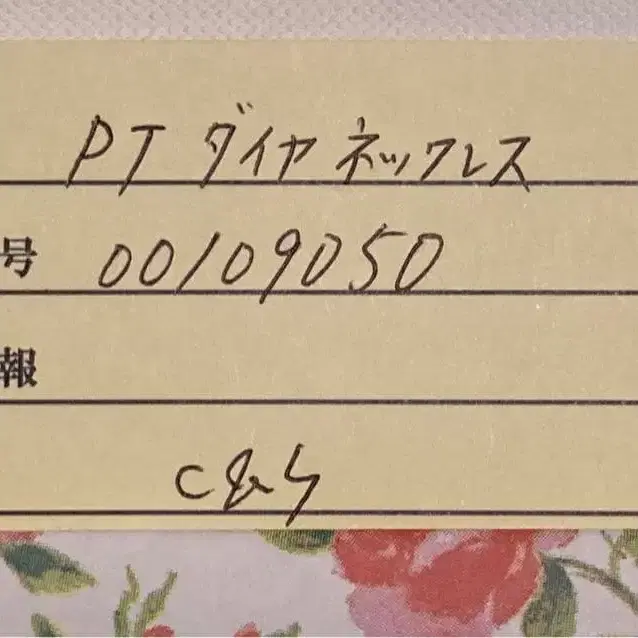 PT ダイヤ ネックレス
号 00109050
報
C&S